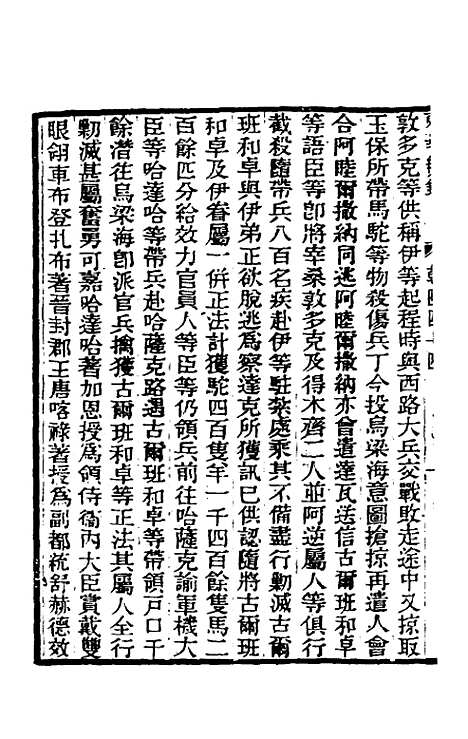 敦多克等供稱伊等起程時與西路大兵交戰敗走途中又掠取
玉保所帶馬駝等物殺傷兵丁今投烏梁海意圖搶掠再遣人會
合阿睦爾撒納同逃阿睦爾撒納亦曾遣達瓦送信古爾班和卓
等語臣等卽將宰桑敦多克及得木齊二人並阿逆屬人等俱行
截殺隨帶兵八百名疾赴伊等駐紮處乘其不備盡行勦滅古爾
班和卓與伊弟正欲脫逃爲察達克所獲訊已供認隨將古爾班
和卓及伊眷屬一併正法計獲駝四百隻羊一千四百餘隻馬二
百餘匹分給效力官員人等臣等仍領兵前往哈薩克諭軍機大
臣等哈達哈等帶兵赴哈薩克路遇古爾班和卓等帶領戶口千
餘潛往烏梁海卽派官兵擒獲古爾班和卓等正法其屬人全行
勦滅甚屬奮勇可嘉哈達哈著加恩授爲領侍衞內大臣賞戴雙
眼翎車布登扎布著晉封郡王唐喀祿著授爲副都統舒赫德效